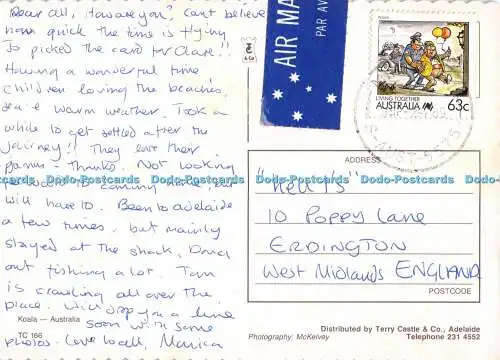 Dear All, How are you? Can't believe
how quick the time is flying
Jo picked the card for Clare!!
Having a wonderful time
children loving the beaches,
sea & warm weather. Took a
while to get settled after the
journey!! They love their
games - Thanks. Not looking
coming home but
will have to. Been to Adelaide
a few times, but mainly
stayed at the shack. David
out fishing a lot. Tom
is crawling all over the
place. Will drop you a line
soon with some
photos. Love to all, Monica
Koala — Australia
TC 166
AIR MAIL
PAR AV
POLICE
LIVING TOGETHER
AUSTRALIA 63c
S. AUST 5575
ADDRESS
10 POPPY Lane
ERDINGTON
West Midlands ENGLAND
POSTCODE
Distributed by Terry Castle & Co., Adelaide
Photography: McKelvey Telephone 231 4552
Dodo-Postcards Dodo-Postcards Dodo-Postcards Dodo-Postcards Dodo-Postcards